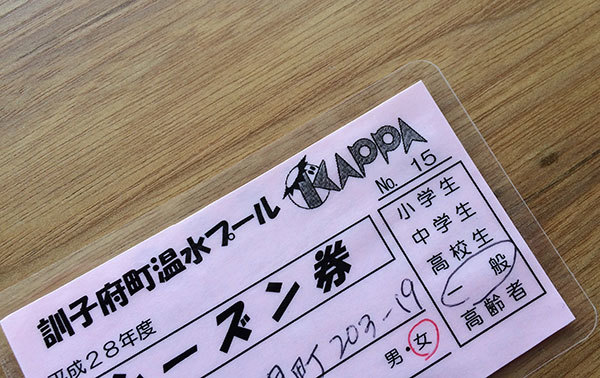 訓子府町温水プール KAPPA
No. 15
平成28年度
シーズン券
小学生
中学生
高校生
一般
高齢者
町203-19
男・女